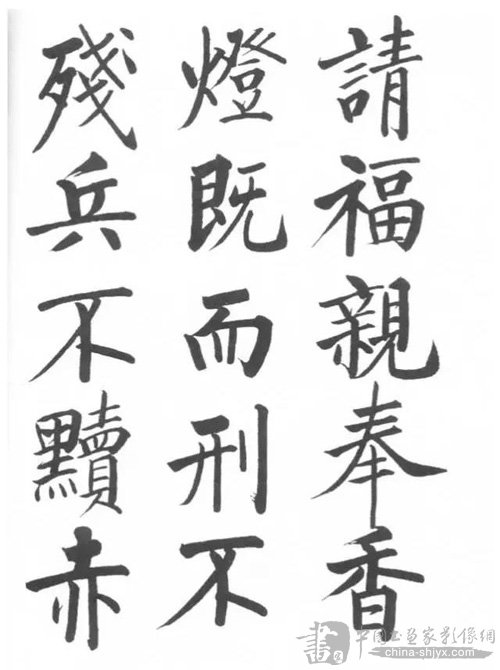 請福親奉香
燈既而刑不
殘兵不黷赤
書
中国书画家影像網
china-shjyx.com